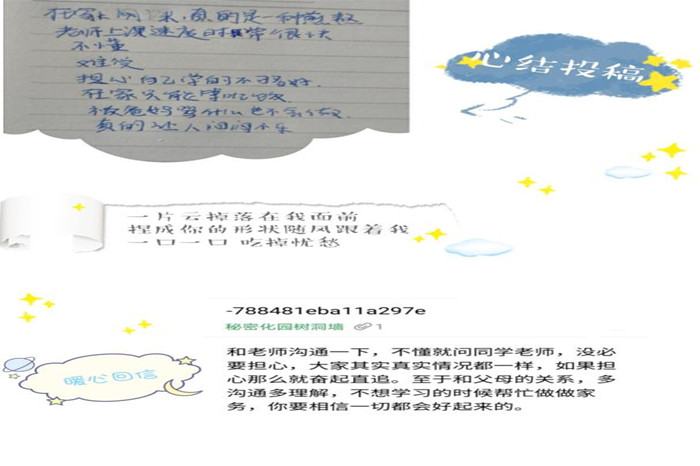 在家上网课,真的是一种煎熬
老师上课速度时常很快
不懂
难受
担心自己学的不够好.
在家只能
被爸妈骂什么也不会做.
真的让人闷闷不乐
心结投稿
一片云掉落在我面前
捏成你的形状随风跟着我
一口一口 吃掉忧愁
-788481eba11a297e
秘密化园树洞墙 1
暖心回信
和老师沟通一下,不懂就问同学老师,没必
要担心,大家其实真实情况都一样,如果担
心那么就奋起直追。至于和父母的关系,多
沟通多理解,不想学习的时候帮忙做做家
务,你要相信一切都会好起来的。